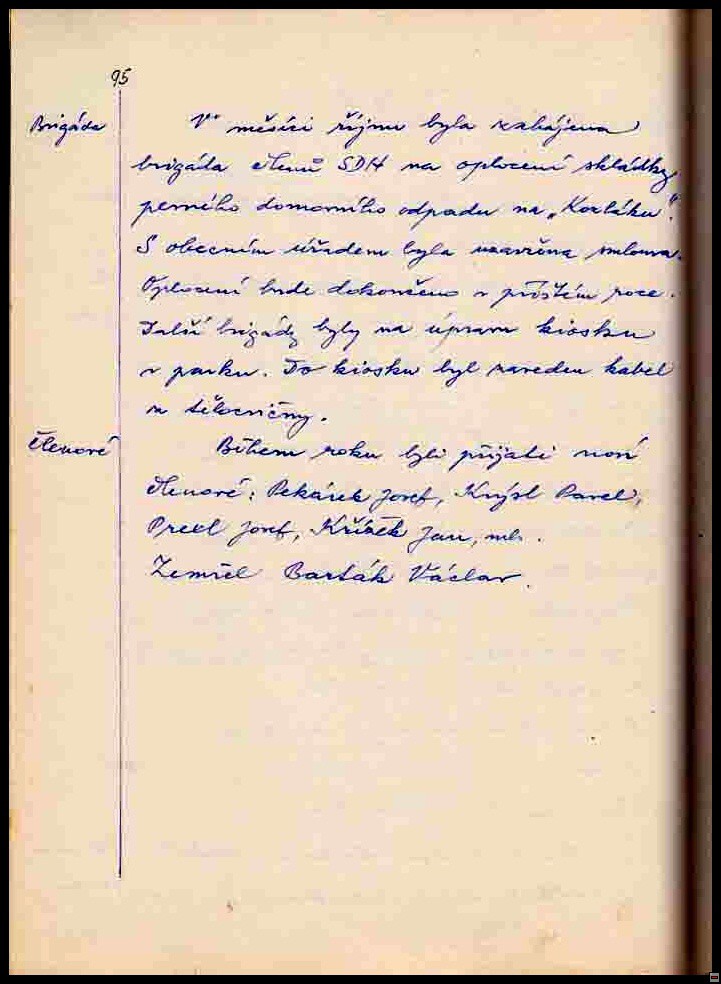 95
Brigáda
V měsíci říjnu byla zahájena
brigáda členů SDH na oplocení skládky
pevného domovního odpadu na „Kozláku".
S obecním úřadem byla uzavřena smlouva.
Oplocení bude dokončeno v příštím roce.
Další brigády byly na úpravu kiosku
v parku. Do kiosku byl zaveden kabel
z tělocvičny.
Členové
Během roku byli přijati noví
členové: Pekárek Josef, Krýsl Pavel,
Josef, Křížek Jan, ml.
Zemřel Barták Václav.